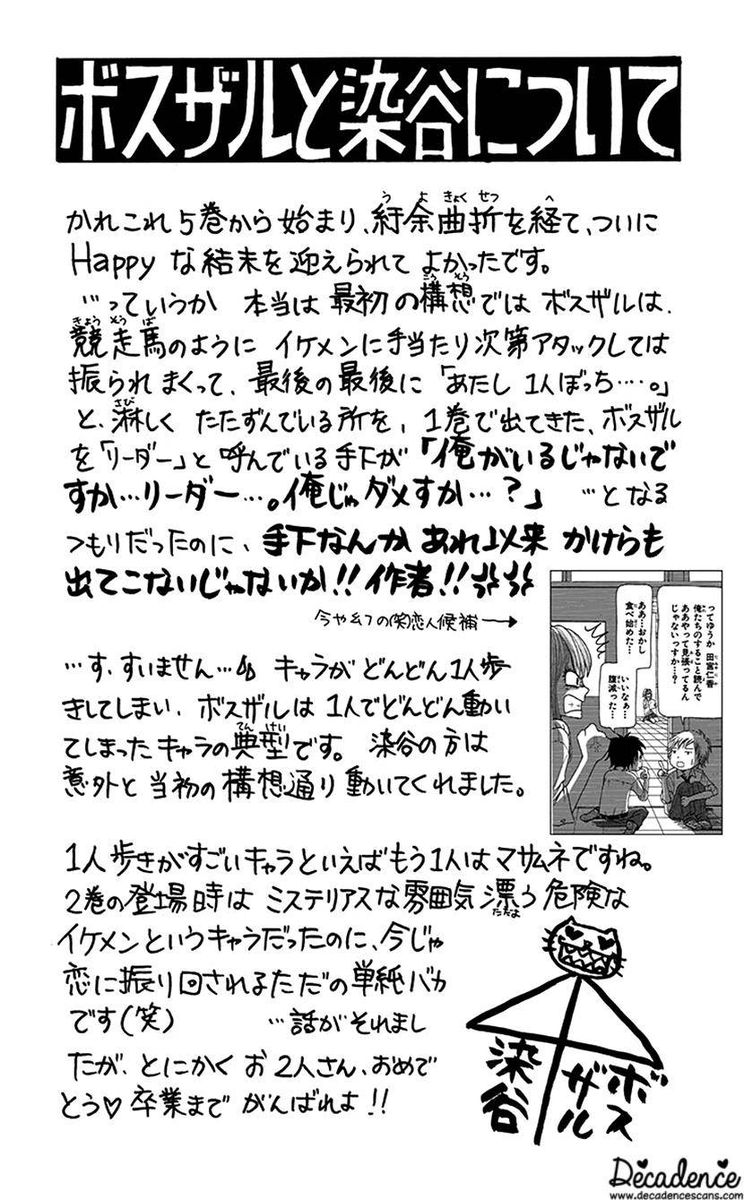 ボスザルと染谷について
かれこれ5巻から始まり、紆余曲折を経て、ついに
Happyな結末を迎えられて よかったです。
…っていうか 本当は 最初の構想では ボスザルは、
競走馬のように イケメンに手当たり次第アタックしては
振られまくって、最後の最後に「あたし 1人ぼっち……。」
と、淋しく たたずんでいる所を、1巻で出てきた、ボスザル
を「リーダー」と 呼んでいる 手下が「俺がいるじゃないで
すか…リーダー…。俺じゃダメすか…?」 …となる
つもりだったのに、手下なんか あれ以来 かけらも
出てこないじゃないか!!作者!!
今や幻の(笑)恋人候補→
ってゆうか 田宮仁香
俺たちのすること読んで
ああやって見張ってるん
じゃないっすか…?
ああ…おかし
食べ始めた…
いいなぁ…
腹減った…
…す、すいません… キャラが どんどん1人歩
きしてしまい、ボスザルは 1人でどんどん動い
てしまったキャラの典型です。 染谷の方は
意外と 当初の構想通り 動いてくれました。
1人歩きがすごいキャラといえばもう1人はマサムネですね。
2巻の登場時は ミステリアスな雰囲気漂う 危険な
イケメンというキャラだったのに、今じゃ
恋に振り回されるただの単純バカ
です(笑) …話がそれまし
たが、とにかく お2人さん、おめで
とう♡ 卒業まで がんばれよ!!
ボスザル
染谷
Decadence
www.decadencescans.com